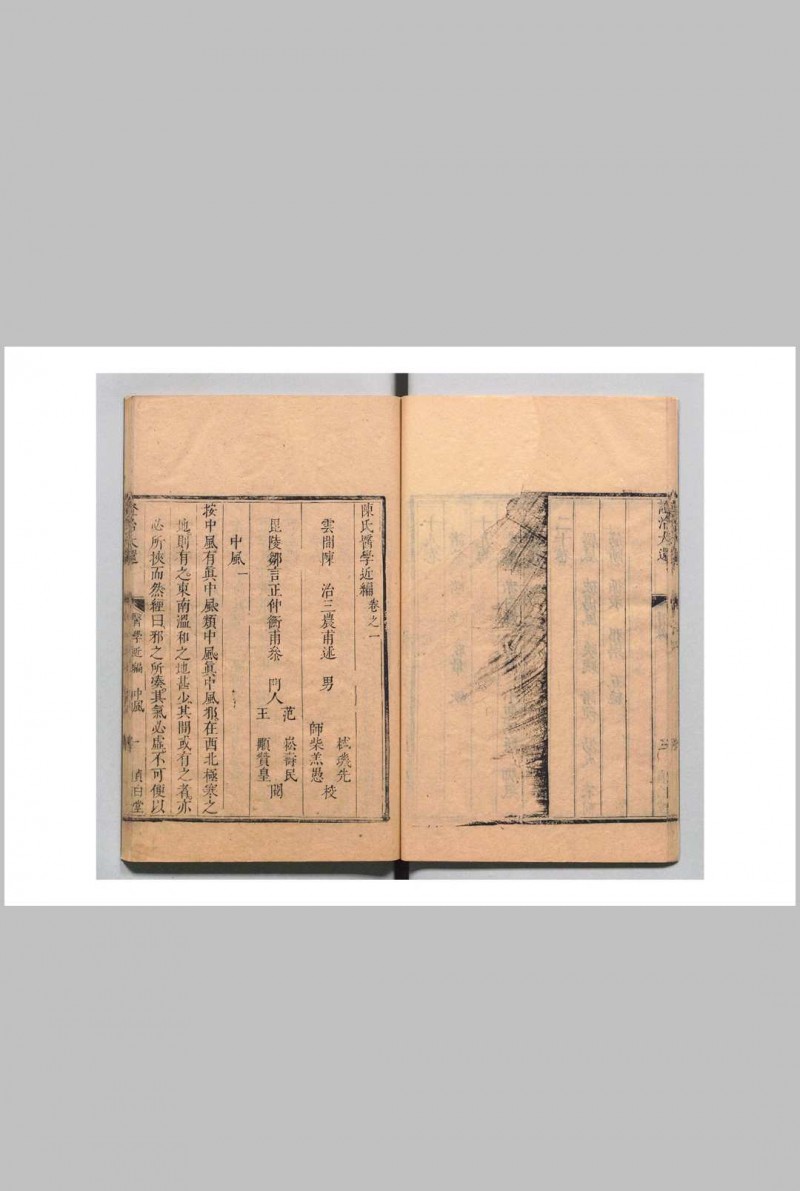 證治大還
陳氏醫學近編 卷之一
雲間陳 治三農甫述 男
栻璣先
師柴羔愚
校
毘陵鄒言正仲衡甫參 門人
范 崧壽民
王 顒賞皇
閱
中風一
按中風有眞中風類中風眞中風邪在西北極寒之
地則有之東南溫和之地甚少其間或有之者亦
必所挾而然經曰邪之所湊其氣必虛不可便以
證治大還 醫學近編 中風 一 貞白堂